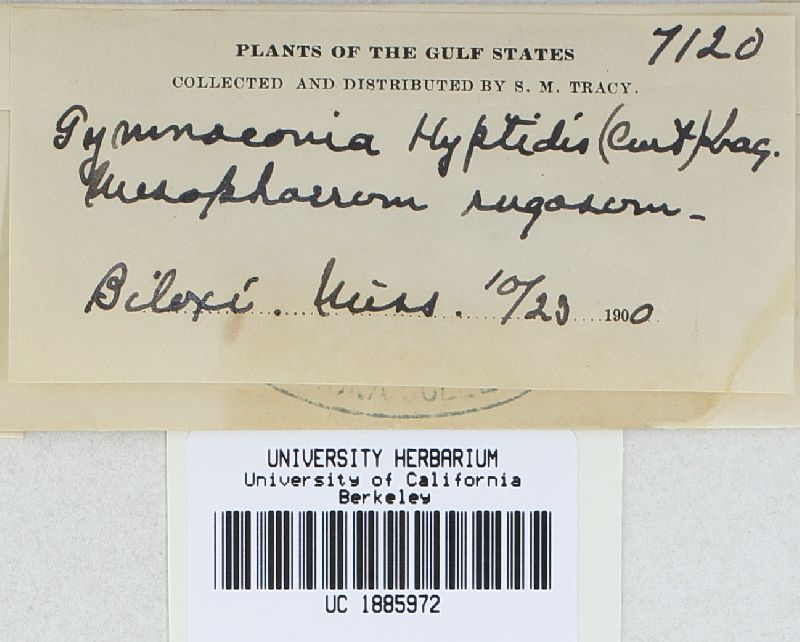 7120
PLANTS OF THE GULF STATES
COLLECTED AND DISTRIBUTED BY S. M. TRACY.
Gymnoconia Hyptidis (Curt) Lag.
Mesophaerum rugosum -
Biloxi. Miss. 10/23 1900
UNIVERSITY HERBARIUM
University of California
Berkeley
UC 1885972